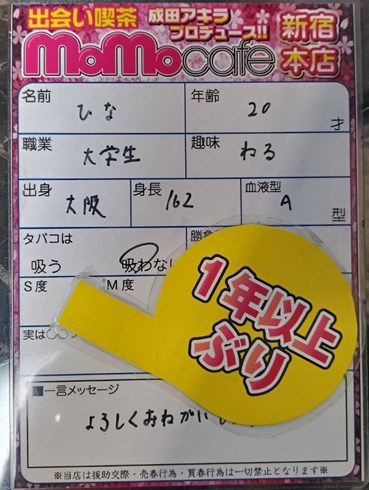 出会い喫茶 成田アキラ プロデュース!! 新宿
MoMocafe 本店
名前 ひな 年齢 20 才
職業 大学生 趣味 ねる
出身 大阪 身長 162 血液型 A 型
タバコは
吸う 吸わない
S度 M度
実は○○
1年以上
ぶり
■一言メッセージ
よろしくおねがいし
※当店は援助交際・売春行為・買春行為は一切禁止となります※